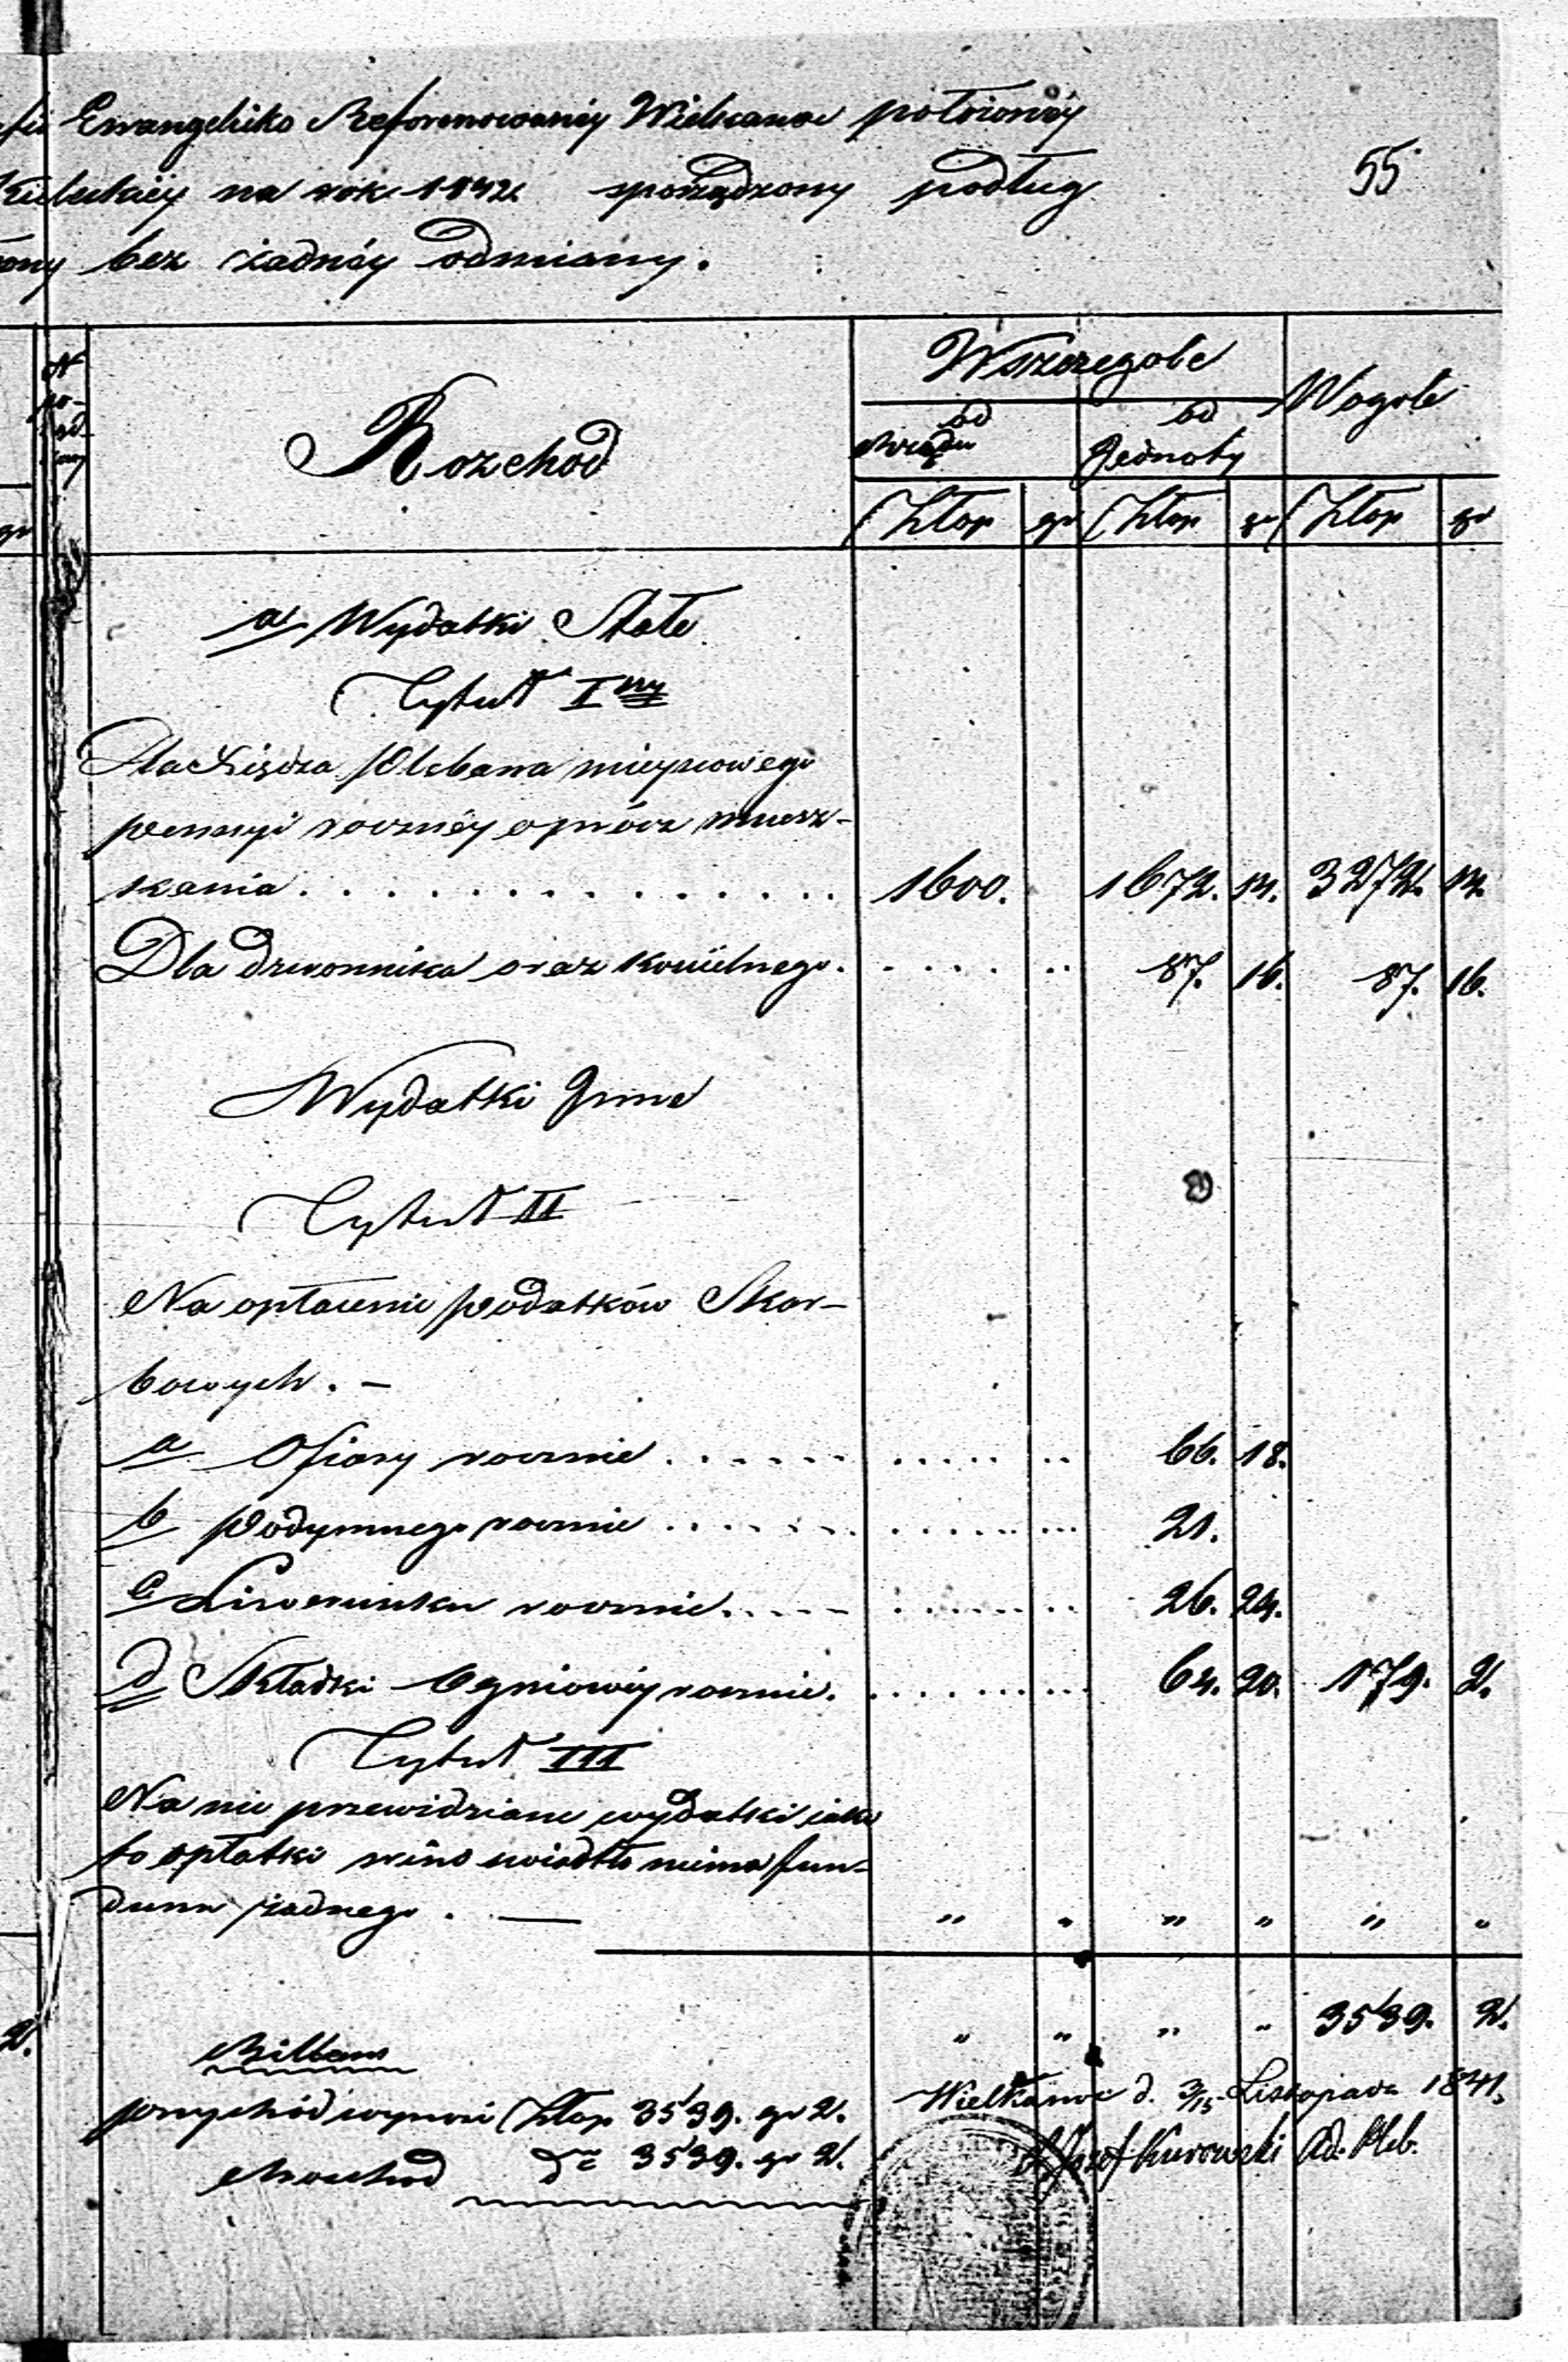 Ewangelicko Reformowanéy Wielkanoc położonéy
Kieleckiéy na rok 1842. sporządzony podług
bez żadnéy odmiany.
55
N
po-
rząd-
kowy
Rozchod
Wszczegole
Wogole
od
Rządu
od
Jednoty
Złotp
gr
Złotp
gr
Złotp
gr
gr
a Wydatki Stałe
Tytuł I ny
Dla Xiędza Plebana mieyscowego
pensyi rocznéy oprócz miesz-
kania . . . . . . . . . . . . . . . 1600. 1672. 14. 3272. 14.
Dla dzwonnika oraz kościelnego. . . . . . . . 87. 16. 87. 16.
Wydatki Inne
Tytuł II
Na opłacenie podatków Skar-
bowych. –
a Ofiary rocznie . . . . . . . . . . . . . 66. 18.
b Podymnego rocznie . . . . . . . . . . . . . 21.
c Liwerunku rocznie . . . . . . . . . . . . 26. 24.
d Składki Ogniowéy rocznie. . . . . . . . . 64. 20. 179. 2.
Tytuł III
Na nie przewidziane wydatki iako
to opłatki wino swiatło niema fun-
duszu żadnego . — " " " " " "
" " " " 3539. 2.
2.
Billans
przychód wynosi Złotp 3539. gr 2.
Rozchod do 3539. gr 2.
Wielkanoc d. 3/15 Listopada 1841.
X Jozef Kurowski Ad. Pleb.